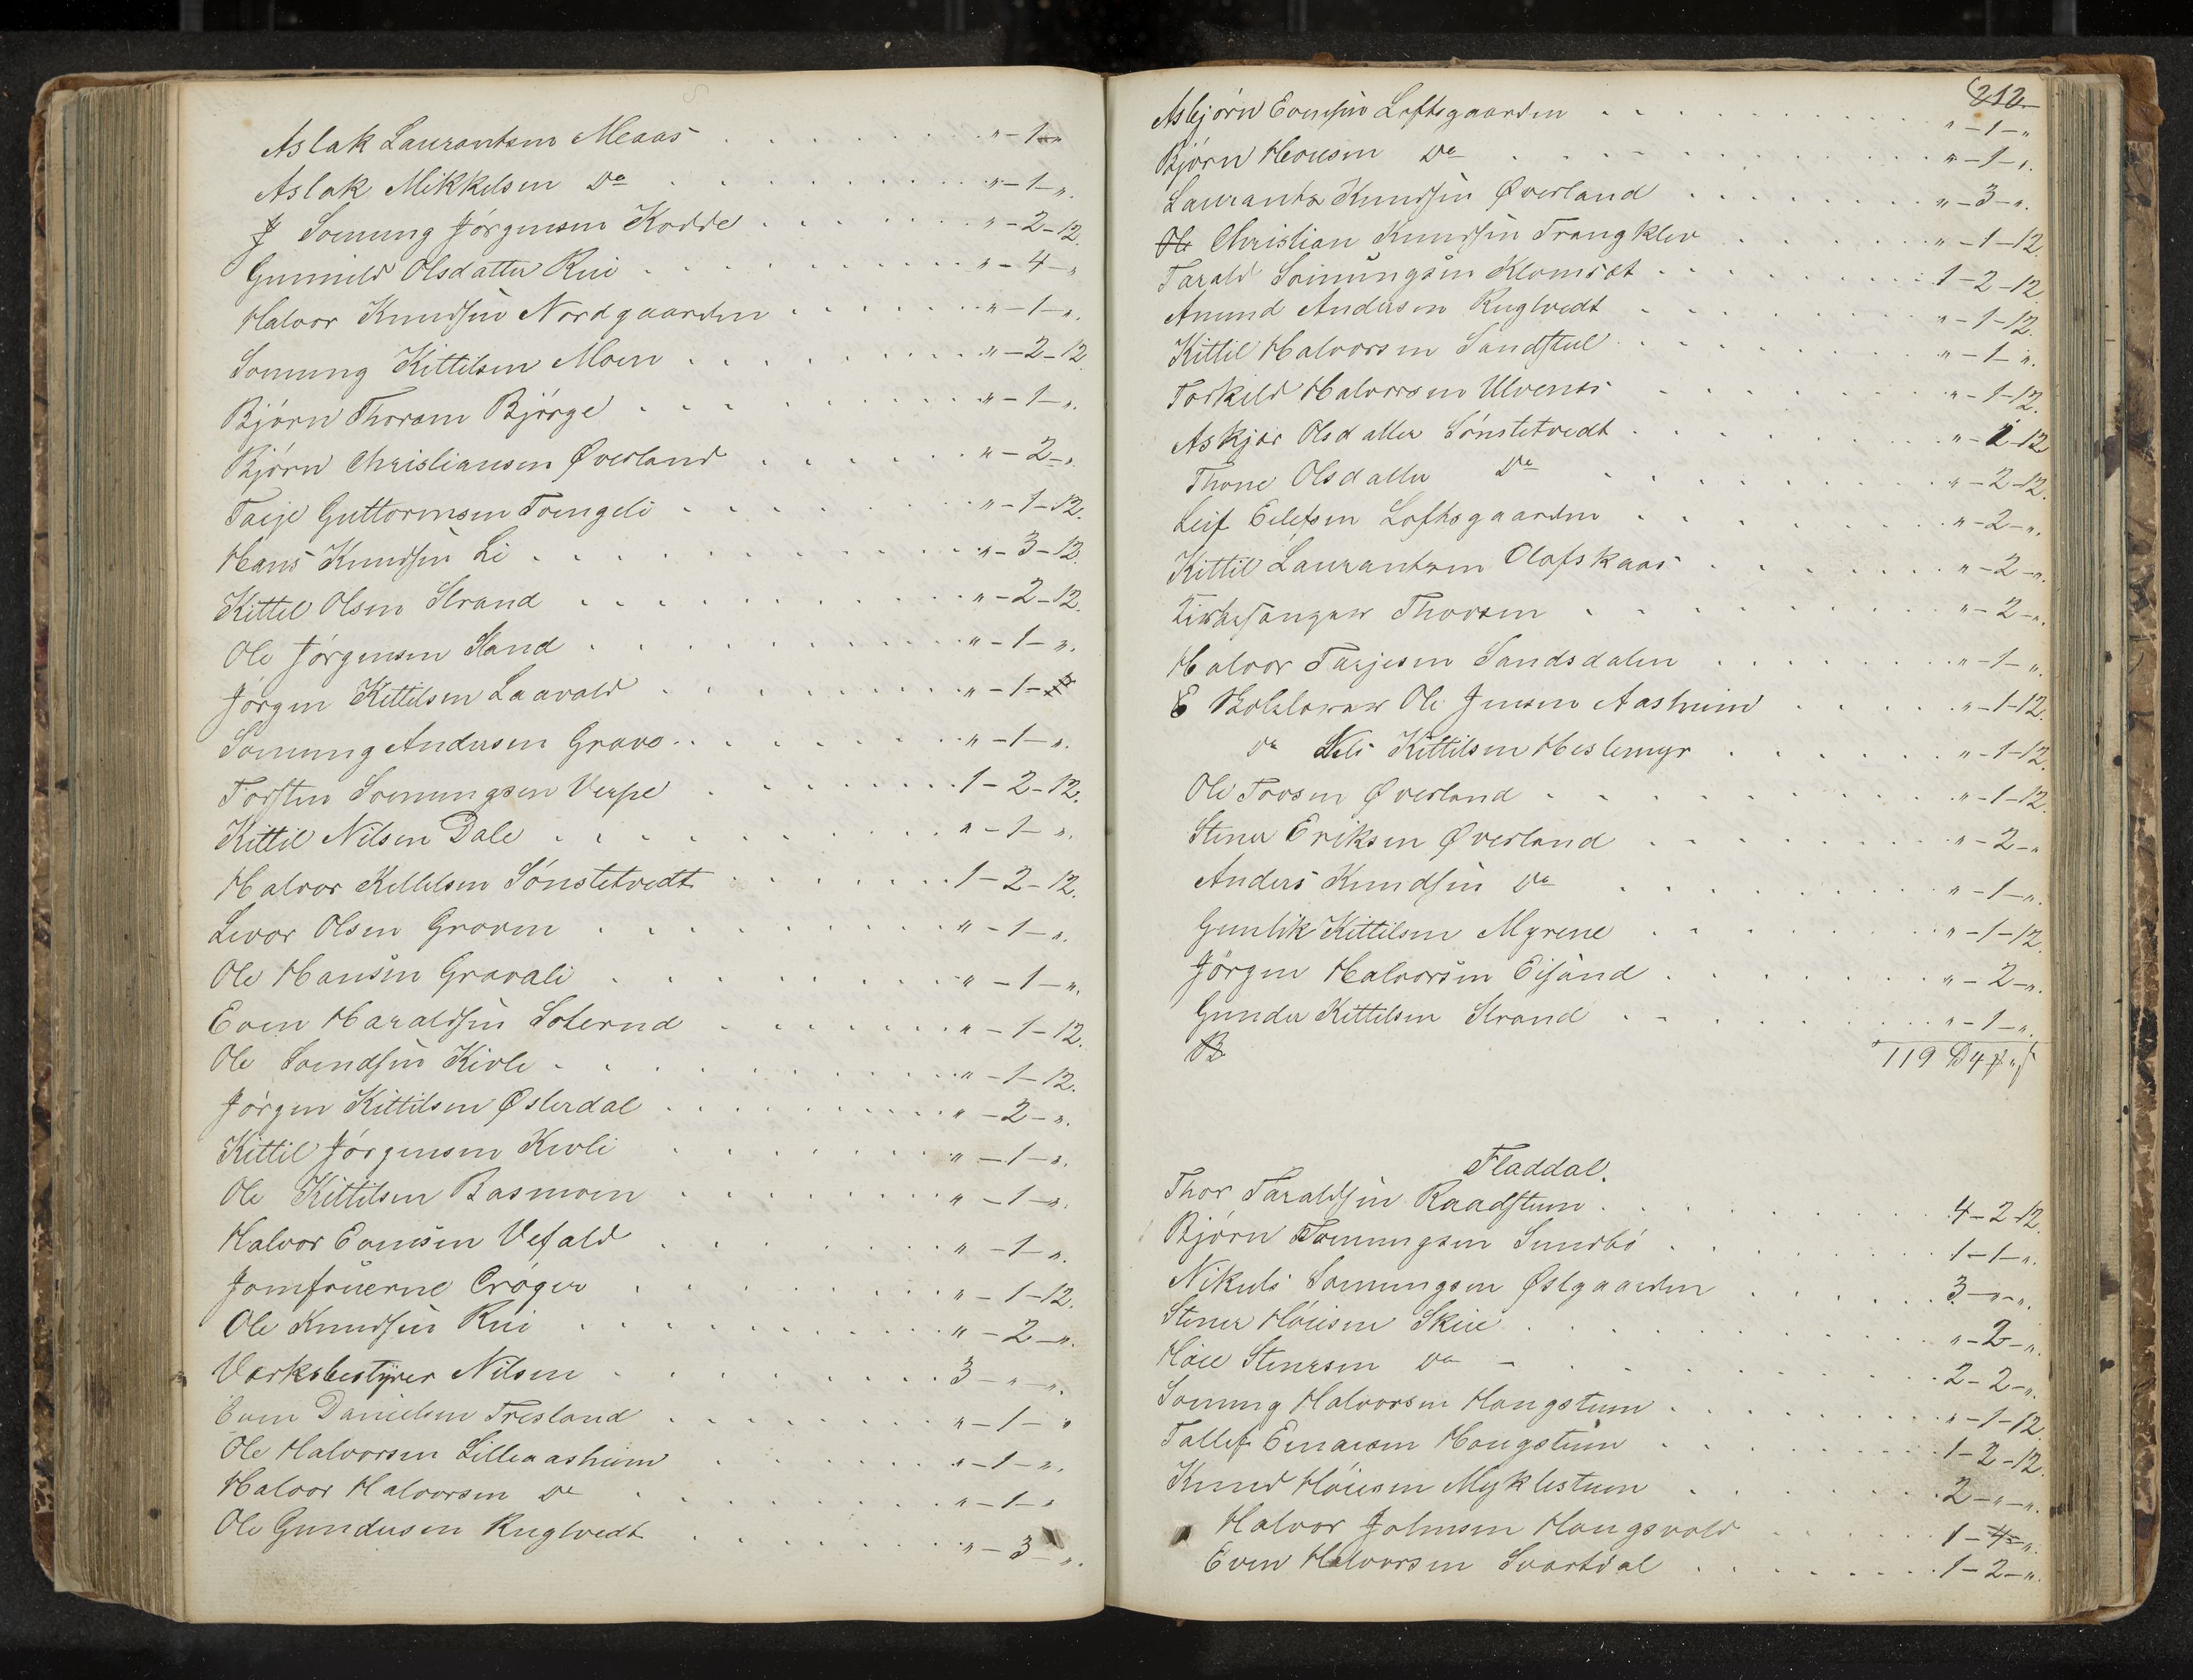 Aslak Laurantsen Meaas . . . . . . . . „ - 1 - „
Aslak Mikkelsen Do . . . . . . . . „ - 1 - „.
Sveinung Jørgensen Kodde . . . . . . „ - 2 - 12.
Gunnild Olsdatter Rui . . . . . . . . „ - 4 - „
Halvor Knudsen Nordgaarden . . . . . . „ - 1 - „.
Svenung Kittilsen Moen . . . . . . . . „ - 2 - 12
Bjørn Thorsen Bjørge . . . . . . . . „ - 1 - „.
Bjørn Christiansen Øverland . . . . . . „ - 2 - „.
Taije Guttormsen Tvengeli . . . . . . „ - 1 - 12.
Hans Knudsen Li . . . . . . . . „ - 3 - 12.
Kittil Olsen Strand . . . . . . . . „ - 2 - 12.
Ole Jørgensen Sand . . . . . . . . „ - 1 - „.
Jørgen Kittilsen Laavald . . . . . . „ - 1 -
Svenung Andersen Grave . . . . . . „ - 1 - „.
Torsten Svenungsen Verpe . . . . . . 1 - 2 - 12.
Kittil Nilsen Dale . . . . . . . . „ - 1 - „.
Halvor Kittilsen Sønstetvedt . . . . . . 1 - 2 - 12.
Levor Olsen Graven . . . . . . . . „ - 1 - „.
Ole Hansen Gravali . . . . . . . . „ - 1 - „.
Even Haraldsen Soterud . . . . . . „ - 1 - 12.
Ole Svendsen Kivle . . . . . . . . „ - 1 - 12.
Jørgen Kittilsen Østerdal . . . . . . „ - 2 - „.
Kittil Jørgensen Kivli . . . . . . „ - 1 - „.
Ole Kittilsen Basmoen . . . . . . „ - 1 - „.
Halvor Evensen Vefald . . . . . . „ - 1 - „.
Jomfruerne Crøger . . . . . . . . „ - 1 - 12.
Ole Knudsen Rui . . . . . . . . „ - 2 - „.
Værksbestyrer Nilsen . . . . . . . . 3 - „ - „.
Even Danielsen Tresland . . . . . . „ - 1 - „
Ole Halvorsen Lilleaasheim . . . . . . „ - 1 - „.
Halvor Halvorsen Do . . . . . . „ - 1 - „
Ole Gundersen Ruglvedt . . . . . . „ - 3 - „.
212
Asbjørn Evensen Loftsgaarden . . . . . . „ - 1 - „
Bjørn Hovesen Do . . . . . . . . „ - 1 - „.
Laurants Knudsen Øverland . . . . . . „ - 3 - „.
Ole Christian Knudsen Trangklev . . . . . . „ - 1 - 12.
Tarald Svenungsen Klomset . . . . . . 1 - 2 - 12.
Anund Andersen Ruglvedt . . . . . . „ - 1 - 12.
Kittil Halvorsen Sandstul . . . . . . „ - 1 - „.
Torkild Halvorsen Ulvenes . . . . . . „ - 1 - 12.
Askjær Olsdatter Sønstetvedt . . . . . . „ - 1 - 12
Thone Olsdatter Do . . . . . . . . „ - 2 - 12.
Leif Eilefsen Loftsgaarden . . . . . . „ - 2 - „.
Kittil Laurantsen Olafskaas . . . . . . „ - 2 - „.
Kirkesanger Thorsen . . . . . . . . „ - 2 - „.
Halvor Tarjesen Sandsdalen . . . . . . „ - 1 - „.
Skolelærer Ole Jensen Aasheim . . . . . „ - 1 - 12.
Do Nils Kittilsen Heslemyr . . . . . . „ - 1 - 12.
Ole Tovsen Øverland . . . . . . . . „ - 1 - 12.
Stener Eriksen Øverland . . . . . . „ - 2 - „
Anders Knudsen Do . . . . . . . . „ - 1 - „.
Gunlik Kittilsen Myrene . . . . . . „ - 1 - 12.
Jørgen Halvorsen Eisand . . . . . . „ - 2 - „.
Gunder Kittilsen Strand . . . . . . „ - 1 - „.
B
119 D 4 „
Fladdal.
Thor Taraldsen Raadstuen . . . . . . 4 - 2 - 12.
Bjørn Svenungsen Sundbø . . . . . . 1 - 1 - „.
Nikuls Svenungsen Østgaarden . . . . . . 3 - „ - „.
Stener Høiesen Skiie . . . . . . „ - 2 - „.
Høie Stenersen Do . . . . . . 2 - 2 - „.
Svenung Halvorsen Haugstuen . . . . . . „ - 1 - 12.
Tallef Einarsen Haugstuen . . . . . . 1 - 2 - 12.
Knud Høiesen Myklestuen . . . . . . 2 - „ - „.
Halvor Johnsen Haugsvold . . . . . . 1 - 4 - „.
Even Halvorsen Svartdal . . . . . . 1 - 2 - „.